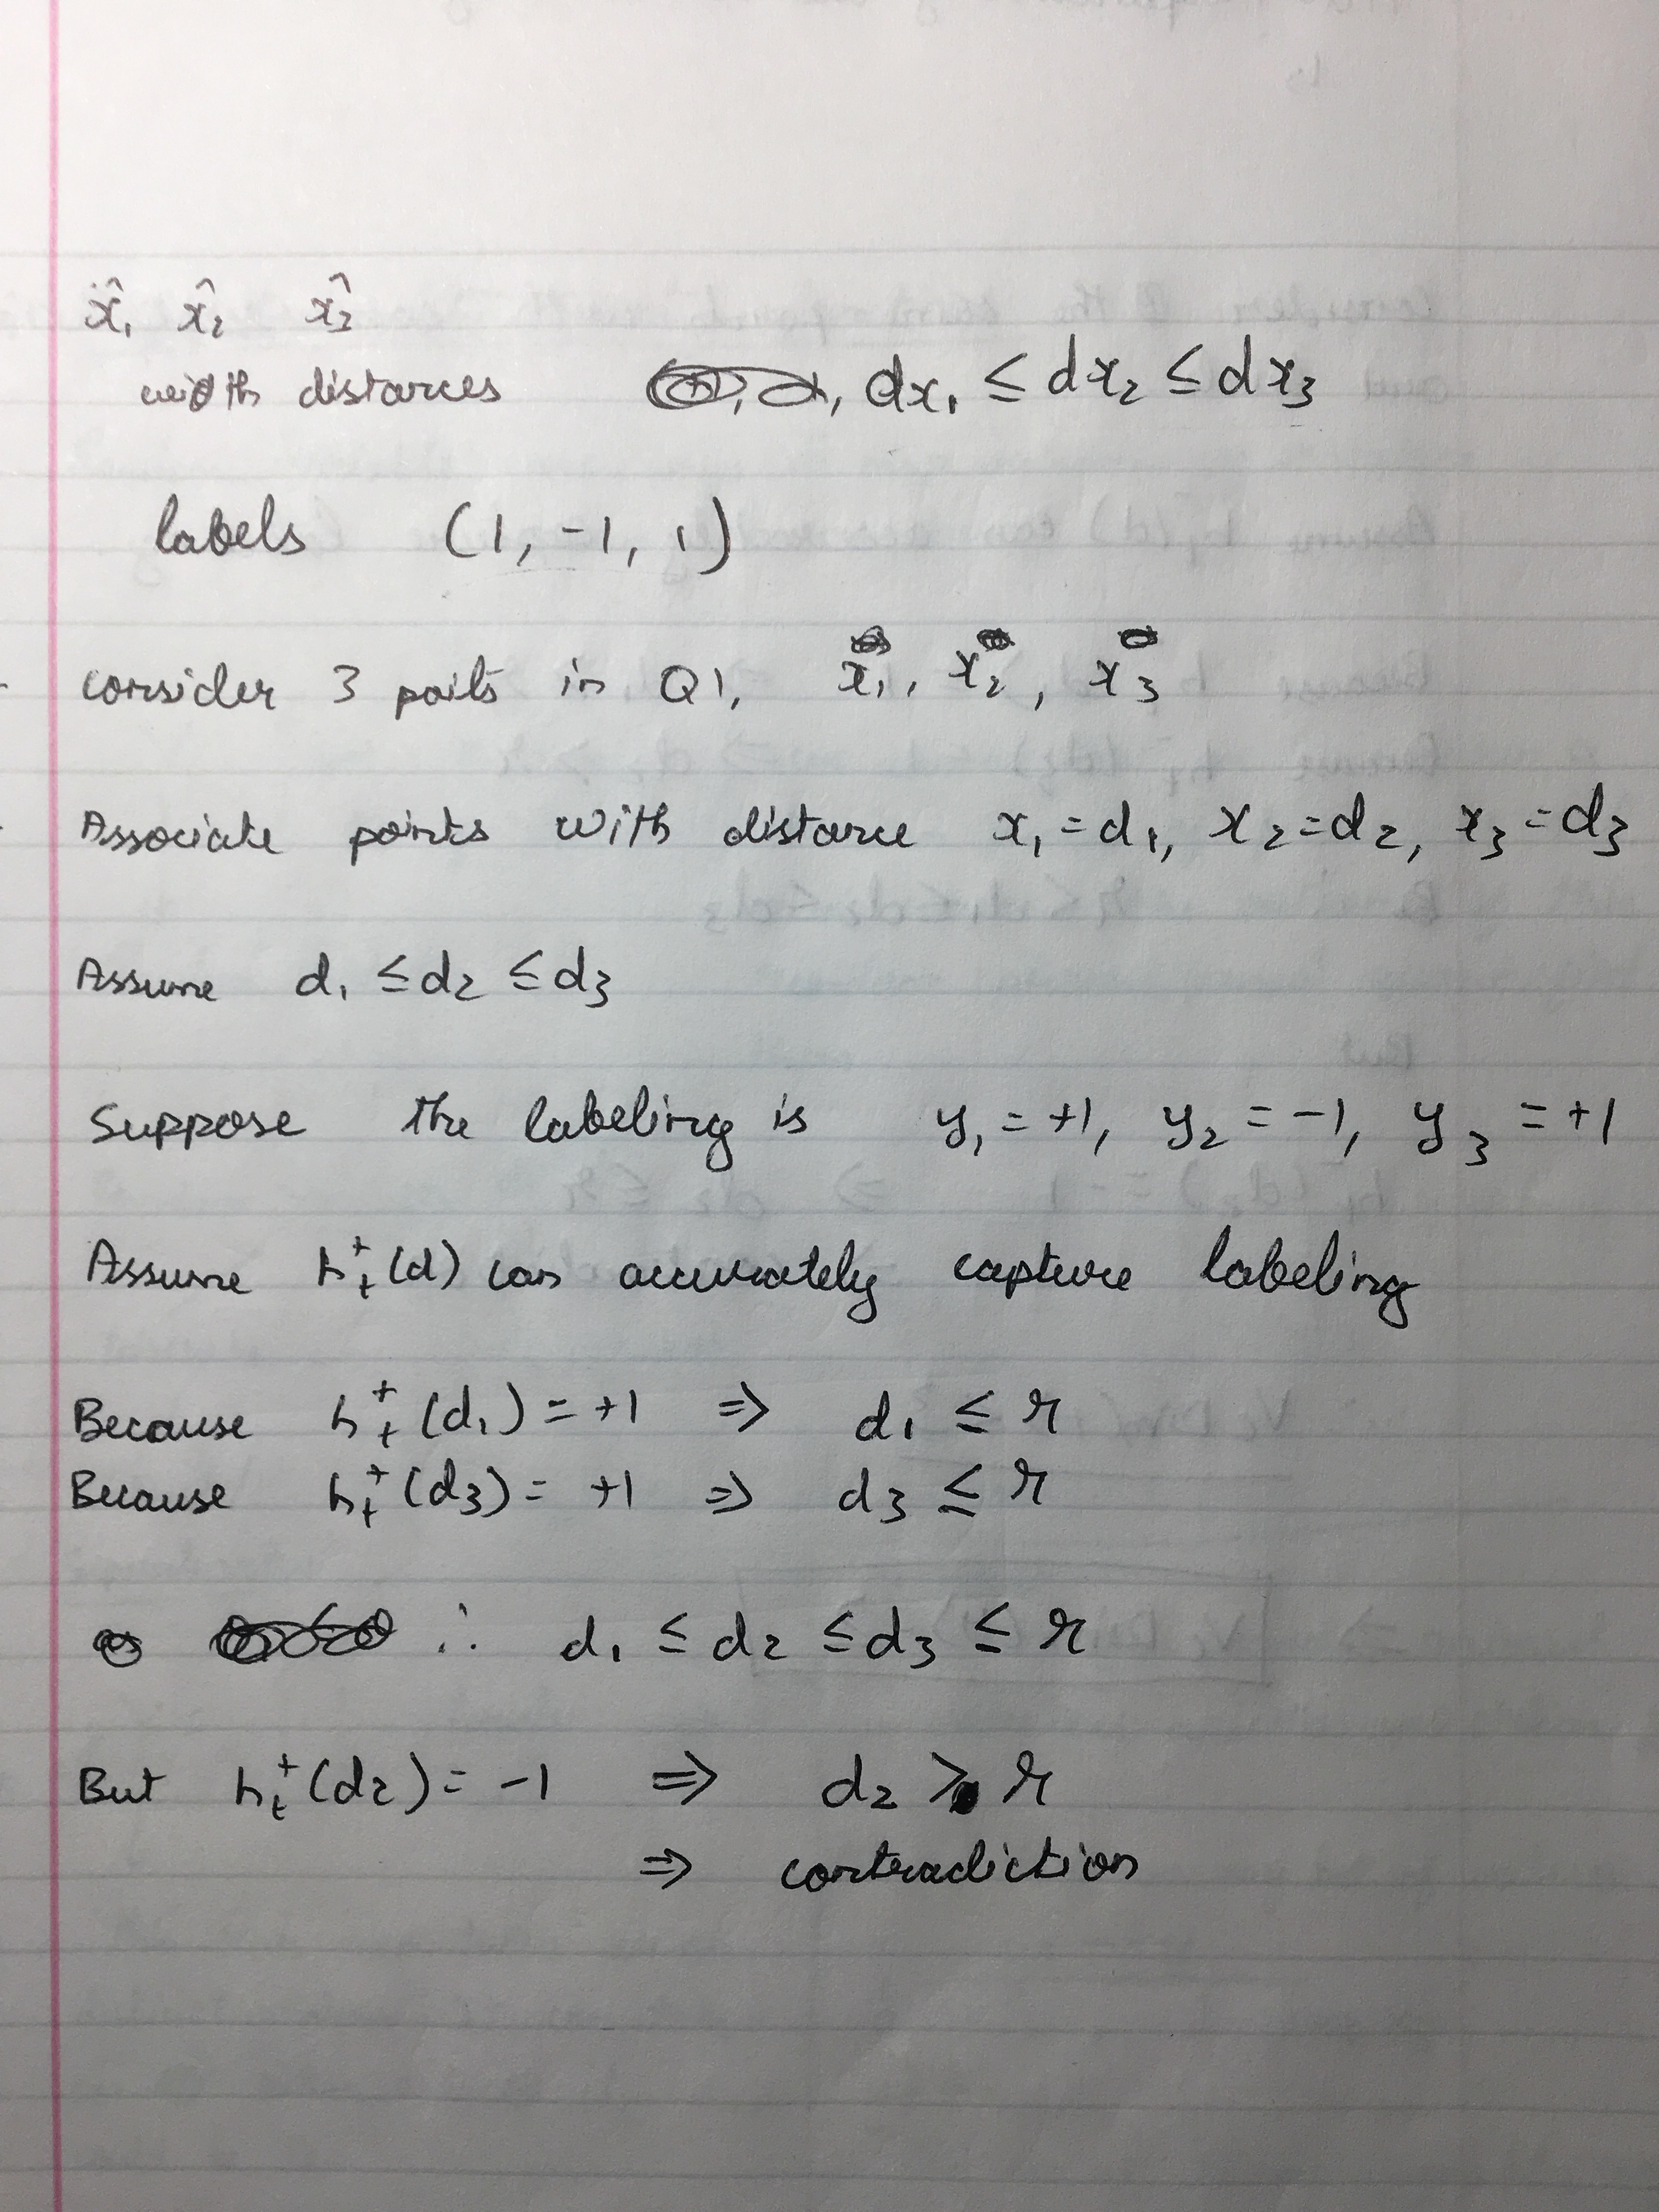 x̂₁ x̂₂ x̂₃
with distances dx₁ ≤ dx₂ ≤ dx₃
labels (1, -1, 1)
consider 3 poits in Q1, x₁, x₂, x₃
Associate points with distance x₁ = d₁, x₂ = d₂, x₃ = d₃
Assume d₁ ≤ d₂ ≤ d₃
Suppose the labeling is y₁ = +1, y₂ = -1, y₃ = +1
Assume h⁺ₜ(d) can accurately capture labeling
Because h⁺ₜ(d₁) = +1 ⇒ d₁ ≤ r
Because h⁺ₜ(d₃) = +1 ⇒ d₃ ≤ r
∴ d₁ ≤ d₂ ≤ d₃ ≤ r
But h⁺ₜ(d₂) = -1 ⇒ d₂ > r
⇒ contradiction